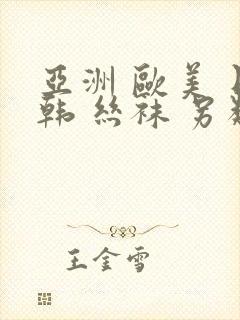 亞洲歐美
韩丝袜另
王金雪